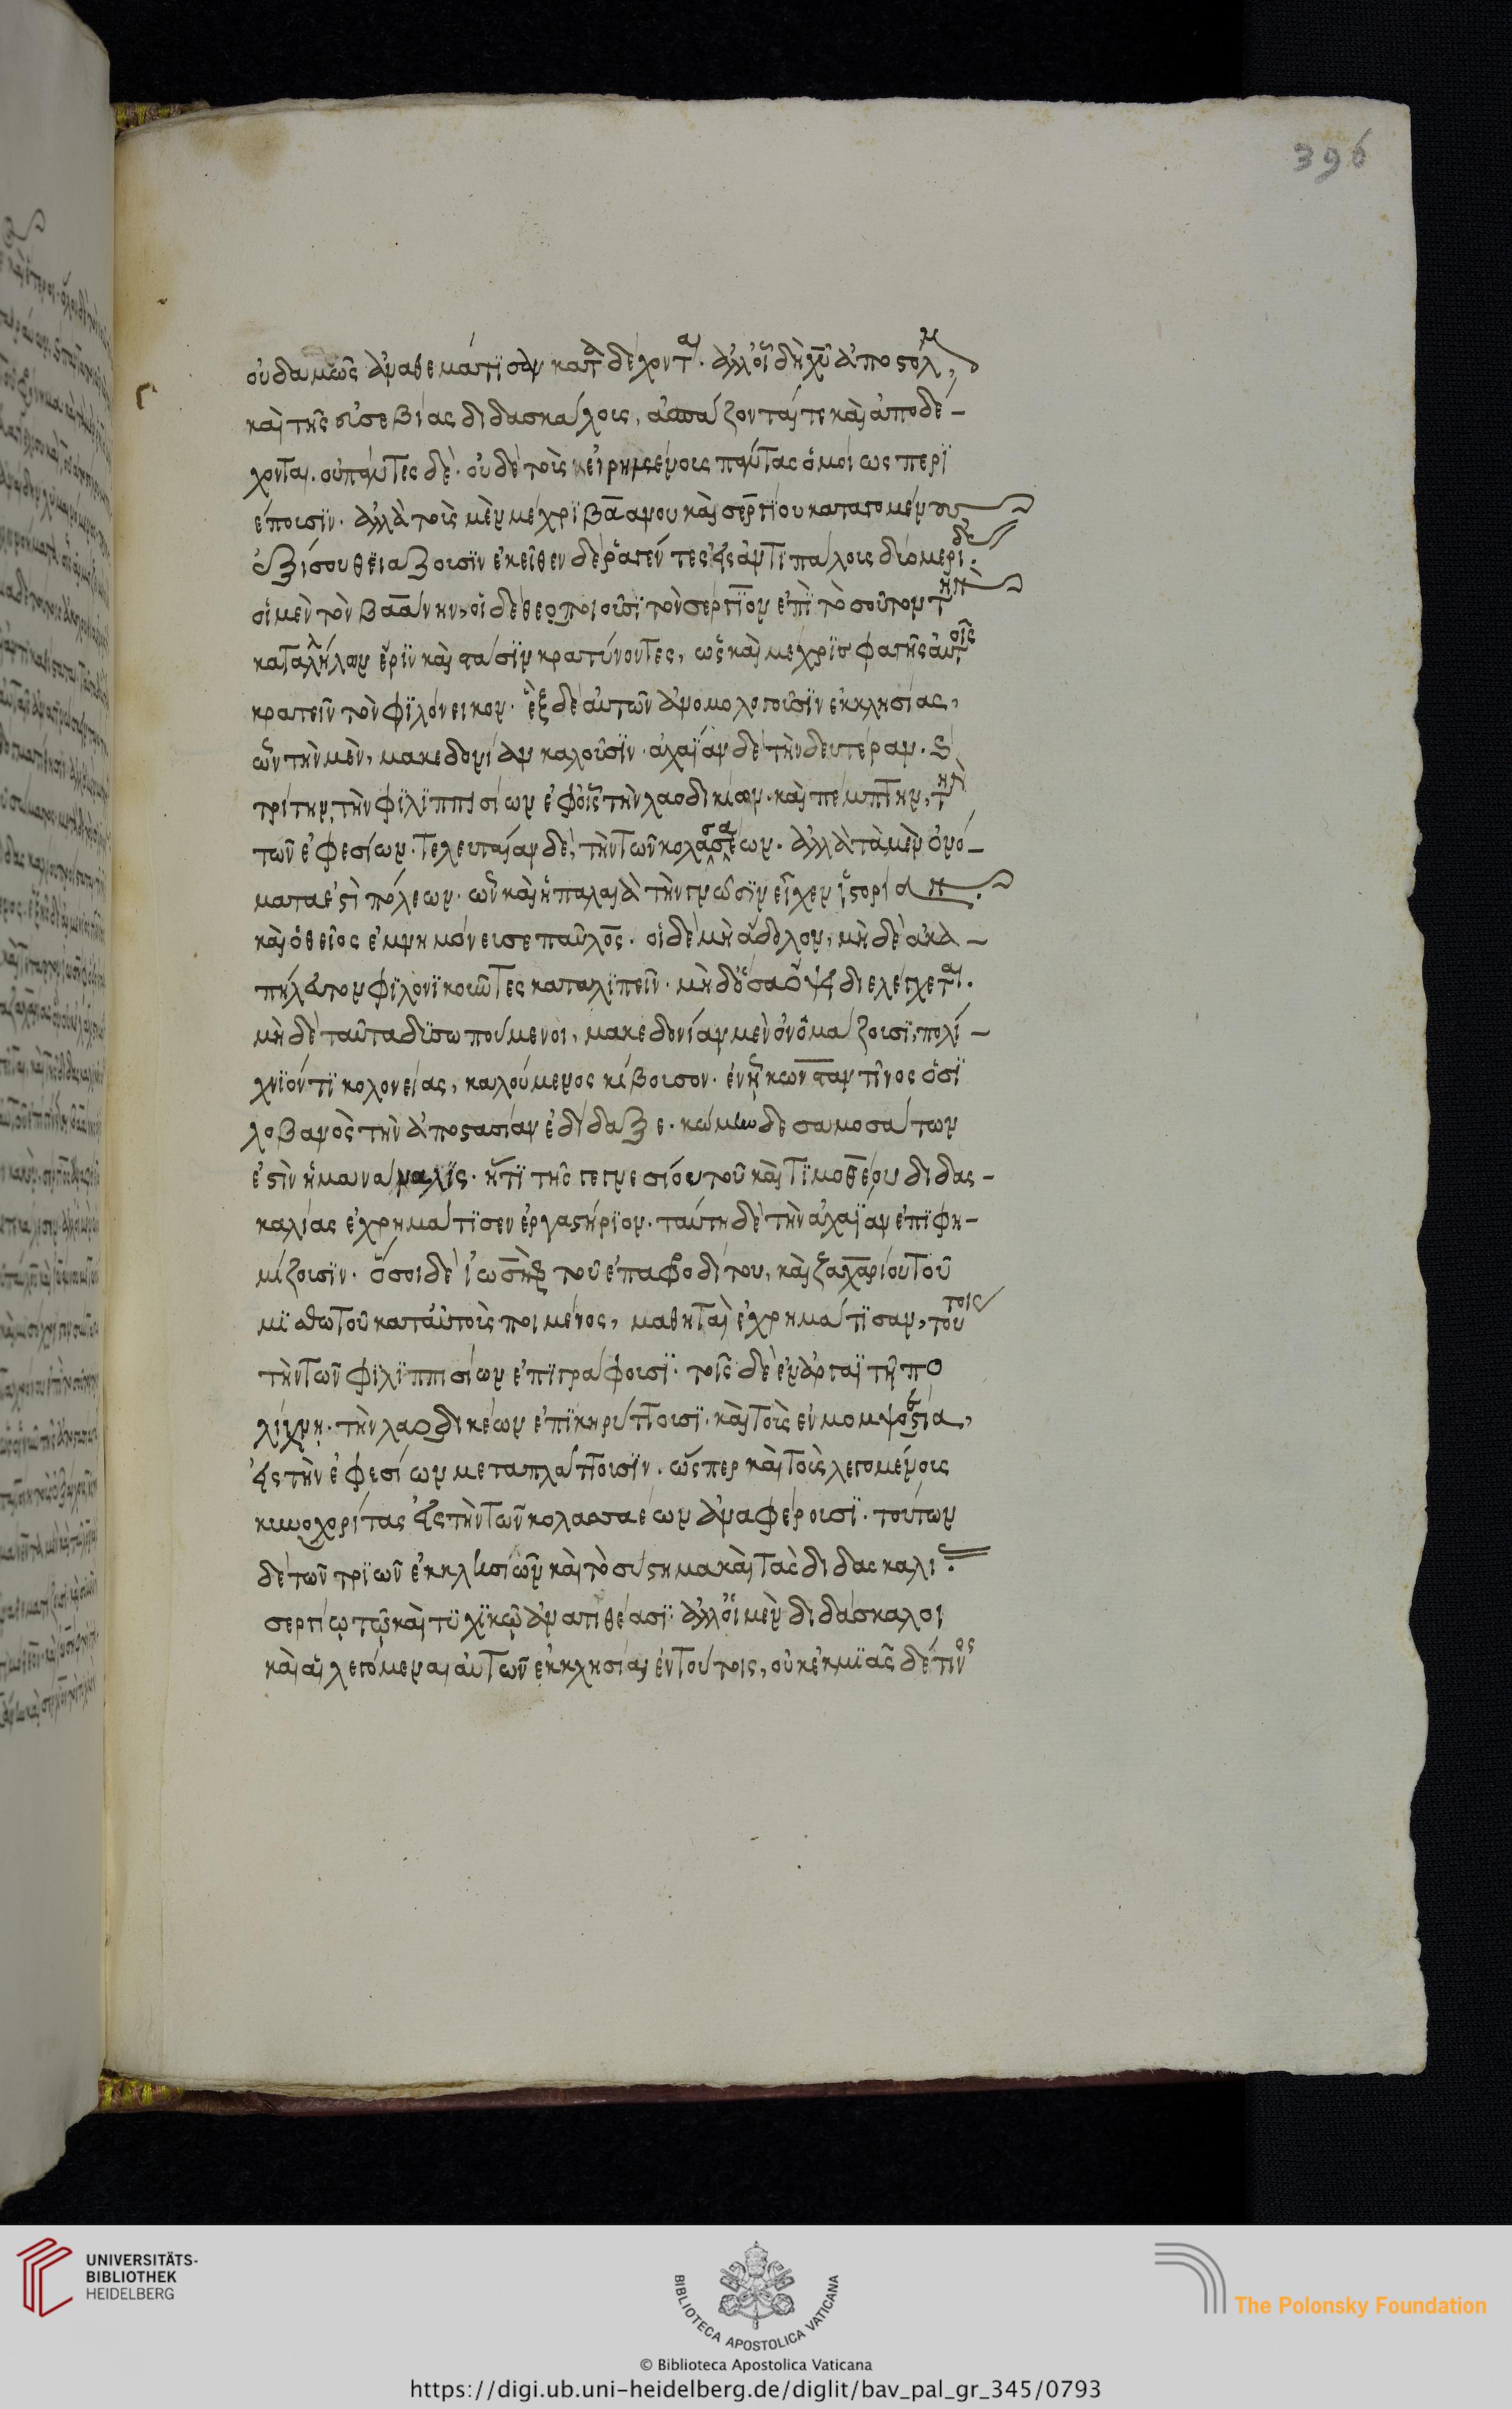 396
οὐδαμῶς ἀναθεματίσαν καταδέχονται. ἀλλ' οἷα δὴ χῦ ἀποστόλους,
καὶ τῆς εὐσεβίας διδασκάλους, ἀσπάζονταί τε καὶ ἀποδέ-
χονται. οὐ πάντες δὲ. οὐδὲ τοὺς εἰρημένους πάντας ὁμοίως περι
έπουσϊν. ἀλλὰ τοὺς μὲν μέχρϊ βαάνου καὶ σεργΐου καταγομένους
ἐξίσου θειάζουσϊν ἐκεῖθεν δὲ ῥαγέντες εἰς ἀντιπάλους δύο μερίδας.
οἱ μὲν τὸν βαάνην, οἱ δὲ θεοποιοῦσϊ τὸν σέργϊον ἐπὶ τὸ σοῦτον τὴν
κατ' ἀλλήλων ἔρϊν καὶ στάσϊν κρατύνοντες, ὡς καὶ μέχρϊ σφαγῆς αὐτοῖς
κρατεῖν τὸν φϊλόνεικον. ἓξ δὲ αὐτῶν ἀνομολογοῦσϊν ἐκκλησίας,
ὧν τὴν μὲν, μακεδονίαν καλοῦσϊν. ἀχαΐαν δὲ τὴν δευτέραν. καὶ
τρίτην, τὴν φϊλϊππισίων ἐφ' οἷς τὴν λαοδικίαν. καὶ πέμπτην, τὴν
τῶν ἐφεσίων. τελευταίαν δὲ, τὴν τῶν κολασσαέων. ἀλλὰ τὰ μὲν ὀνό-
ματα ἐστὶ πόλεων. ὧν καὶ ἡ παλαιὰ τὴν γνῶσϊν εἶχεν ἱστορία.
καὶ ὁ θεῖος ἐμνημόνευσε παῦλος. οἱ δὲ μὴ ἄδολον, μὴ δὲ ἀκα-
πήλευτον φϊλονϊκοῦντες καταλϊπεῖν. μὴ δ' ὅσα ὄψει διελέγχεται.
μὴ δὲ ταῦτα δϋσωπούμενοι, μακεδονίαν μὲν ὀνομάζουσϊ, πολί-
χνϊόν τϊ κολονείας, καλούμενος κίβουσον. ἐν ᾗ κωνσταντῖνος ὁ σϊ
λοβανὸς τὴν ἀποστασίαν ἐδίδαξε. κώμην δὲ σαμοσάτων
ἐστὶν ἡ μανάναλϊς. ἥτϊ τῆς γεγνεσίου τοῦ καὶ τϊμοθέου διδας-
καλίας ἐχρημάτϊσεν ἐργαστήρϊον. ταύτῃ δὲ τὴν ἀχαΐαν ἐπϊφη-
μίζουσϊν. ὅσοι δὲ ἰωσὴφ τοῦ ἐπαφροδίτου, καὶ ζαχαρίου τοῦ
μϊσθωτοῦ κατ' αὐτοὺς ποιμένος, μαθηταὶ ἐχρημάτϊσαν, τούτοις
τὴν τῶν φϊλϊππισίων ἐπϊγράφουσϊ. τοῖς δὲ ἐν ἀργαΐ τῇ πο
λίχνῃ. τὴν λαοδικέων ἐπϊκηρύττουσϊ. καὶ τοὺς ἐν μομψουεστία,
εἰς τὴν ἐφεσίων μεταπλάττουσϊν. ὥσπερ καὶ τοὺς λεγομένους
κυνοχορίτας εἰς τὴν τῶν κολασσαέων ἀναφέρουσϊ. τούτων
δὲ τῶν τρϊῶν ἐκκλησιῶν καὶ τὸ σύστημα καὶ τὰς διδασκαλί
σεργίῳ τῷ καὶ τυχϊκῷ ἀνατιθέασϊ. ἀλλ' οἱ μὲν διδάσκαλοι
καὶ αἱ λεγόμεναι αὐτῶν ἐκκλησίαι ἐν τούτοις, οὐκ ἐκ μϊᾶς δέ τινος
UNIVERSITÄTS-
BIBLIOTHEK
HEIDELBERG
BIBLIOTECA APOSTOLICA VATICANA
The Polonsky Foundation
© Biblioteca Apostolica Vaticana
https://digi.ub.uni-heidelberg.de/diglit/bav_pal_gr_345/0793